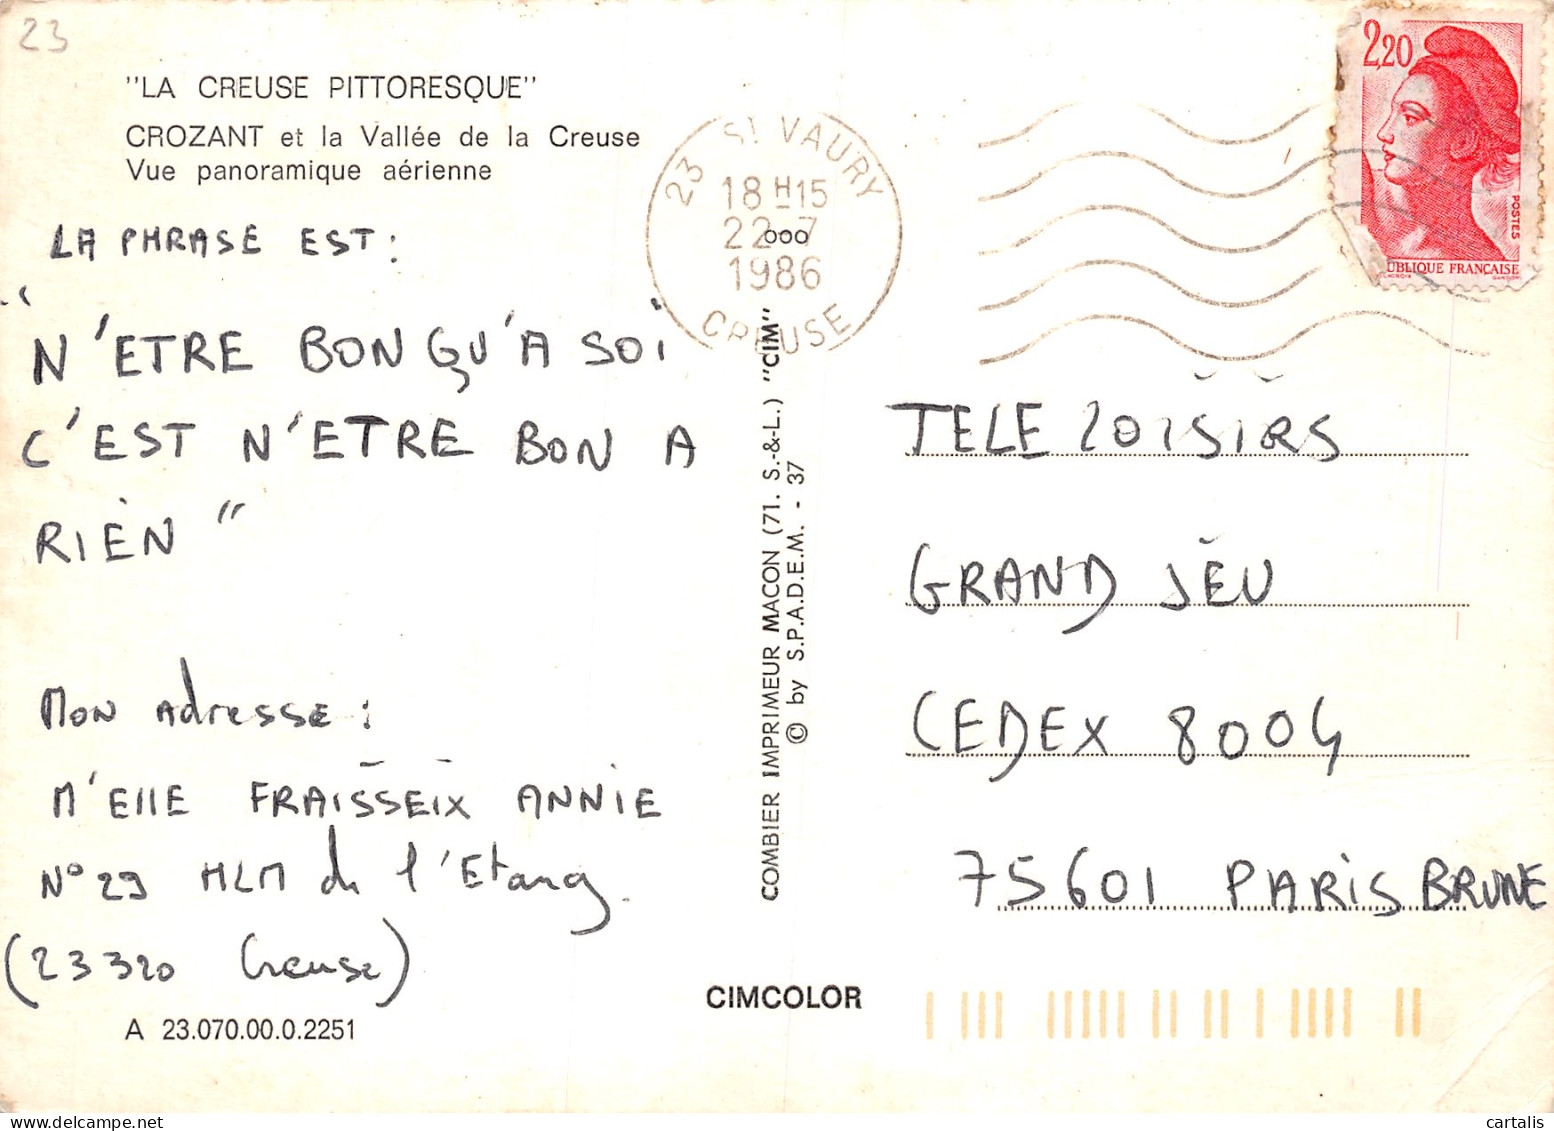 23
"LA CREUSE PITTORESQUE"
CROZANT et la Vallée de la Creuse
Vue panoramique aérienne
LA PHRASE EST :
"N'ETRE BON QU'A SOI
C'EST N'ETRE BON A
RIEN"
MON Adresse :
M'ELLE FRAISSEIX ANNIE
N° 29 HLM de l'Etang
(23320 Creuse)
A 23.070.00.0.2251
23 St VAURY
18 H 15
22-7
1986
CREUSE
000
COMBIER IMPRIMEUR MACON (71. S.-&-L.) "CIM"
© by S.P.A.D.E.M. - 37
CIMCOLOR
2,20
POSTES
UBLIQUE FRANÇAISE
GANDON
TELE LOISIRS
GRAND JEU
CEDEX 8004
75601 PARIS BRUNE
cartalis